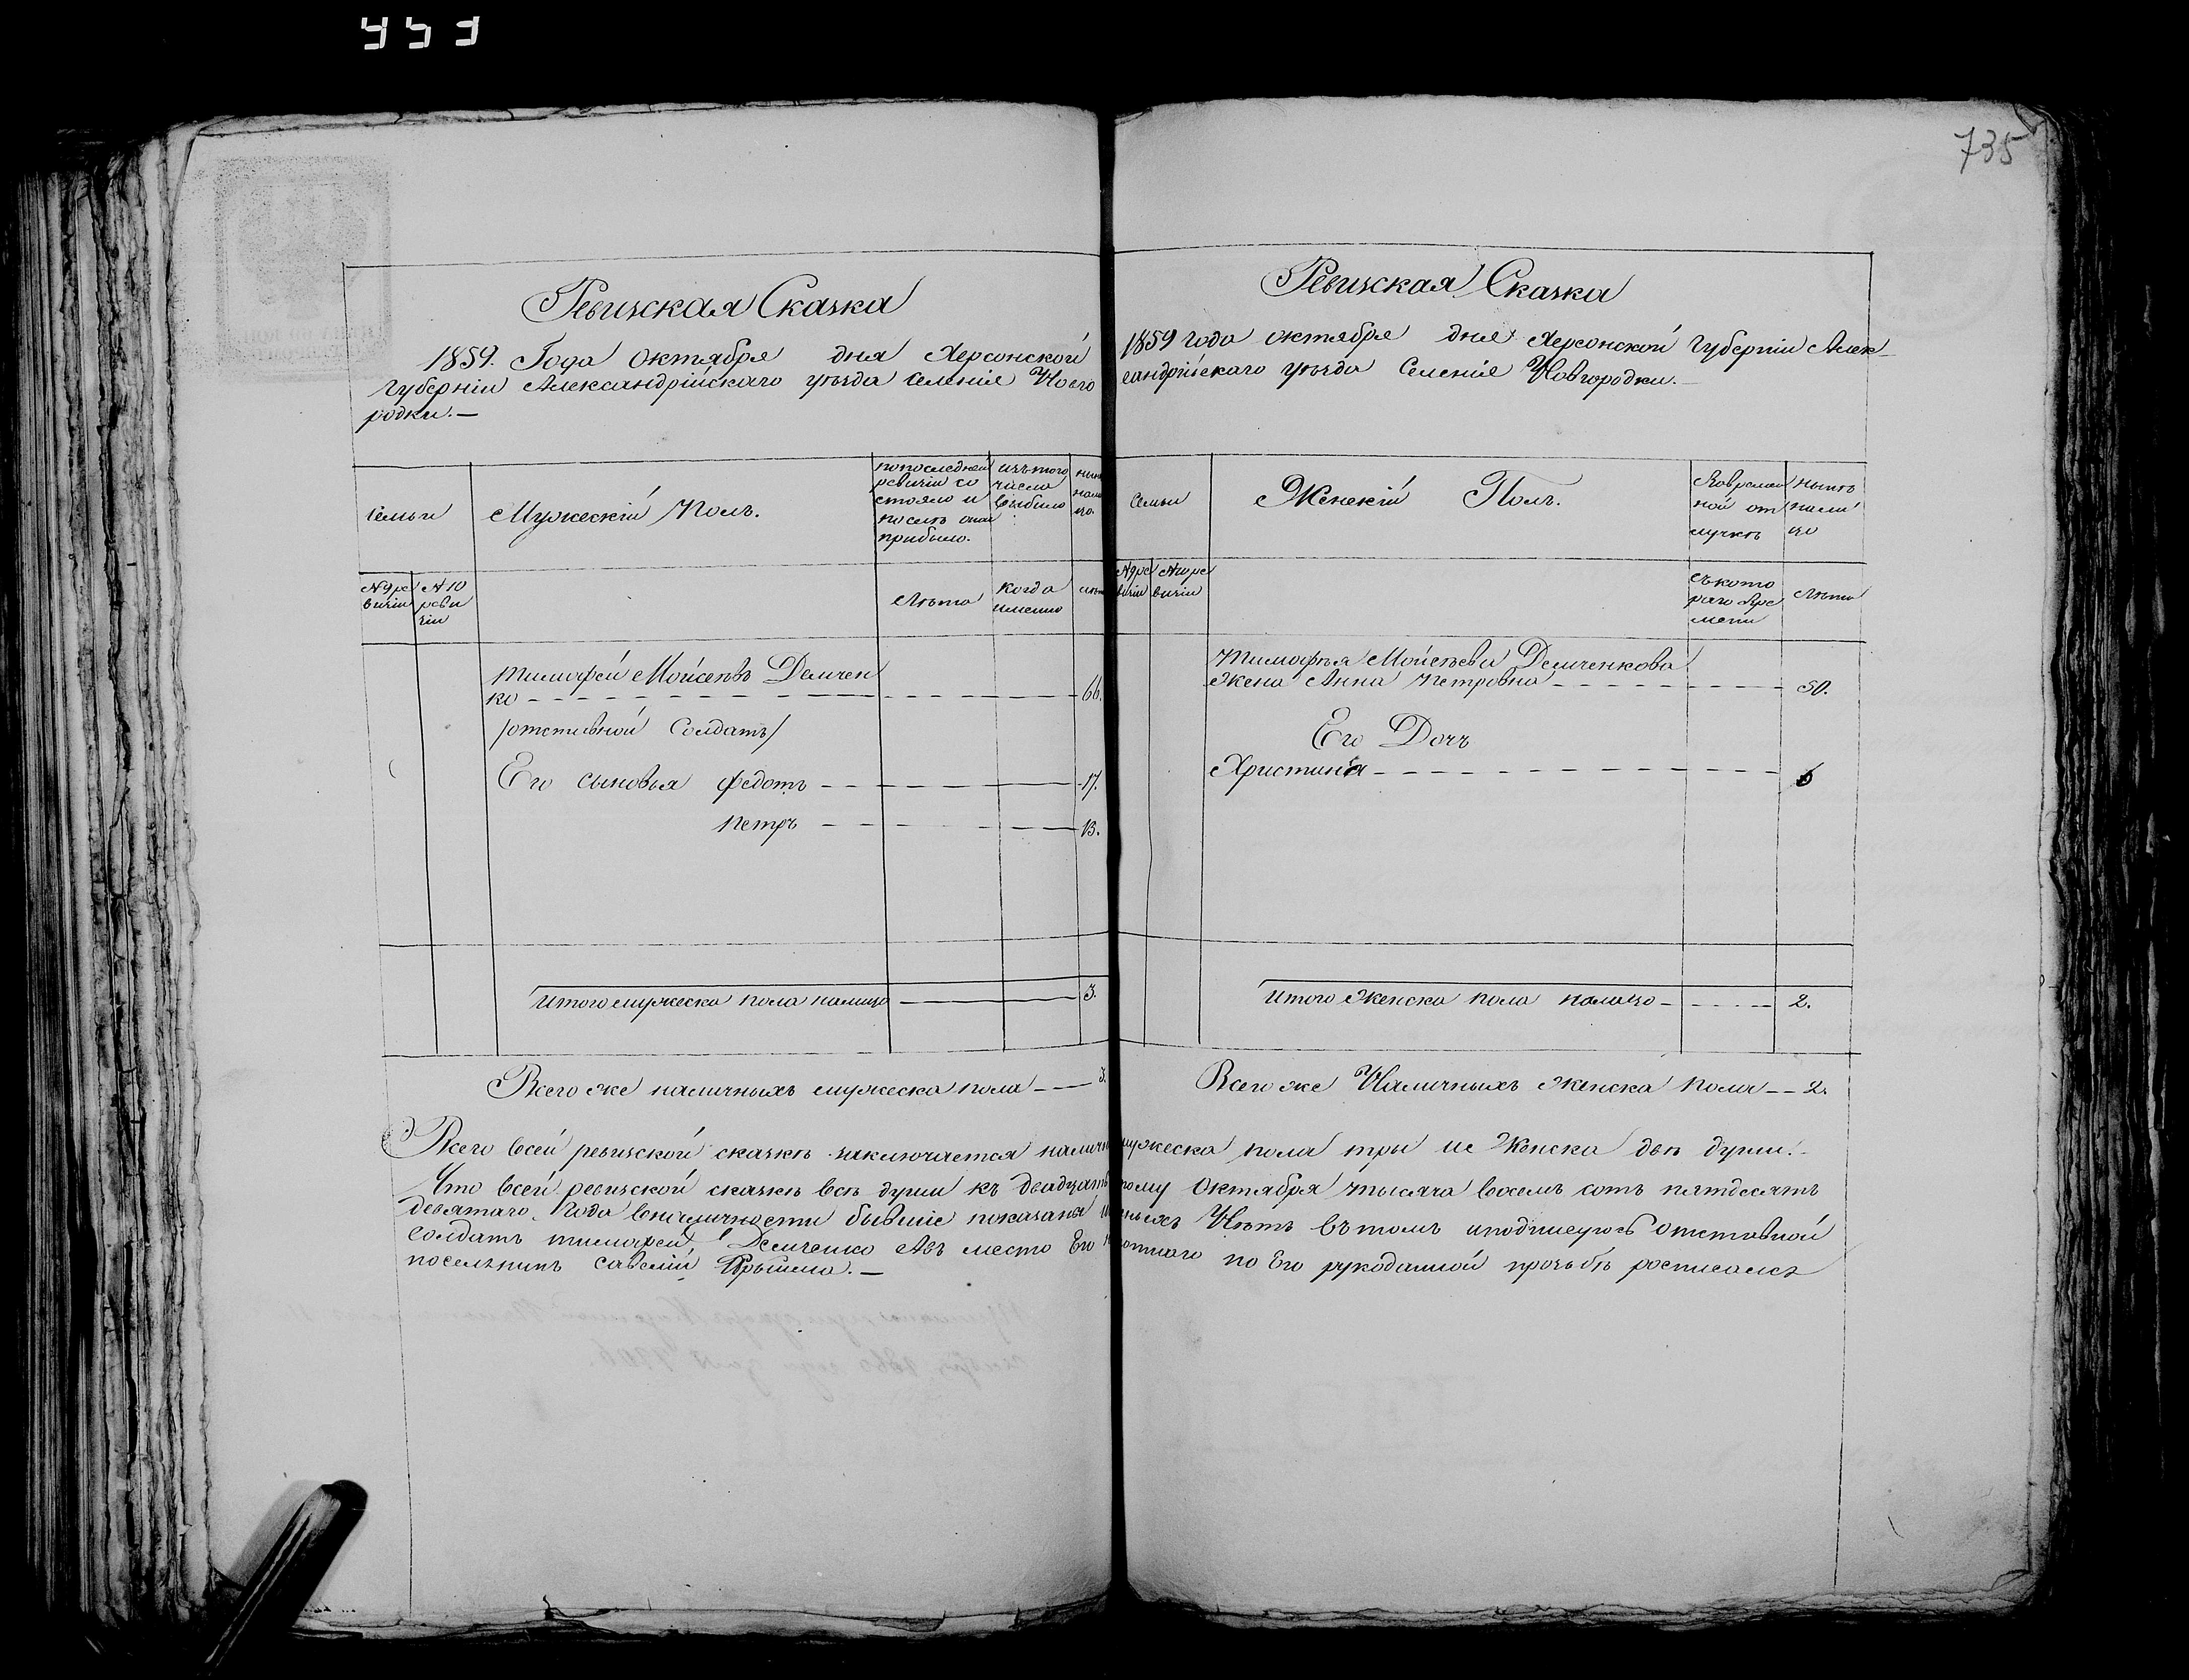 453
735
Ревизская Сказка
1859. Года Октября дня Херсонской
Губерніи Александрійскаго уезда Селеніе Новго
родки.—
Семьи
Мужескій Полъ.
попоследней
ревизіи со
стояло и
после оной
прибыло.
изътого
числа
выбыло
ныне
нали
цо.
№ 9 ре
визіи
№ 10
реви
зіи
Лѣта
Когда
именно
лѣта
Тимофей Мойсеѣвъ Демчен
ко 66.
/отставной Солдатъ/
Его сыновья Федотъ 17.
Петръ 13.
Итого мужеска пола налицо 3.
Всего же наличныхъ мужеска пола 3.
Ревизская Сказка
1859 года октября дня Херсонской Губерніи Алек
сандрійскаго уѣзда Селеніе Новгородки.—
Семьи
Женскій Полъ.
Вовремен
ной от
лучкѣ
нынѣ
нали
цо
№ 9 ре
визіи
№ 10 ре
визіи
съкото
раго вре
мени
Лѣта
Тимофѣя Мойсеѣва Демченкова
Жена Анна Петровна 50.
Его Дочь
Христинья 6
Итого Женска пола налицо 2.
Всего же Наличныхъ женска пола 2.
Всего всей ревизской сказкѣ заключается налично мужеска пола три и Женска двѣ души.
Что всей ревизской сказкѣ всѣ души къ двадцатому Октября тысяча восемъ сотъ пятдесятъ
девятаго Года вналичности бывшіе показаны Нѣтъ въ томъ иподписуюсъ Отставной
солдатъ тимофей Демченко Авъ место Его по Его рукоданной прозьбѣ росписался
поселянинъ савелій